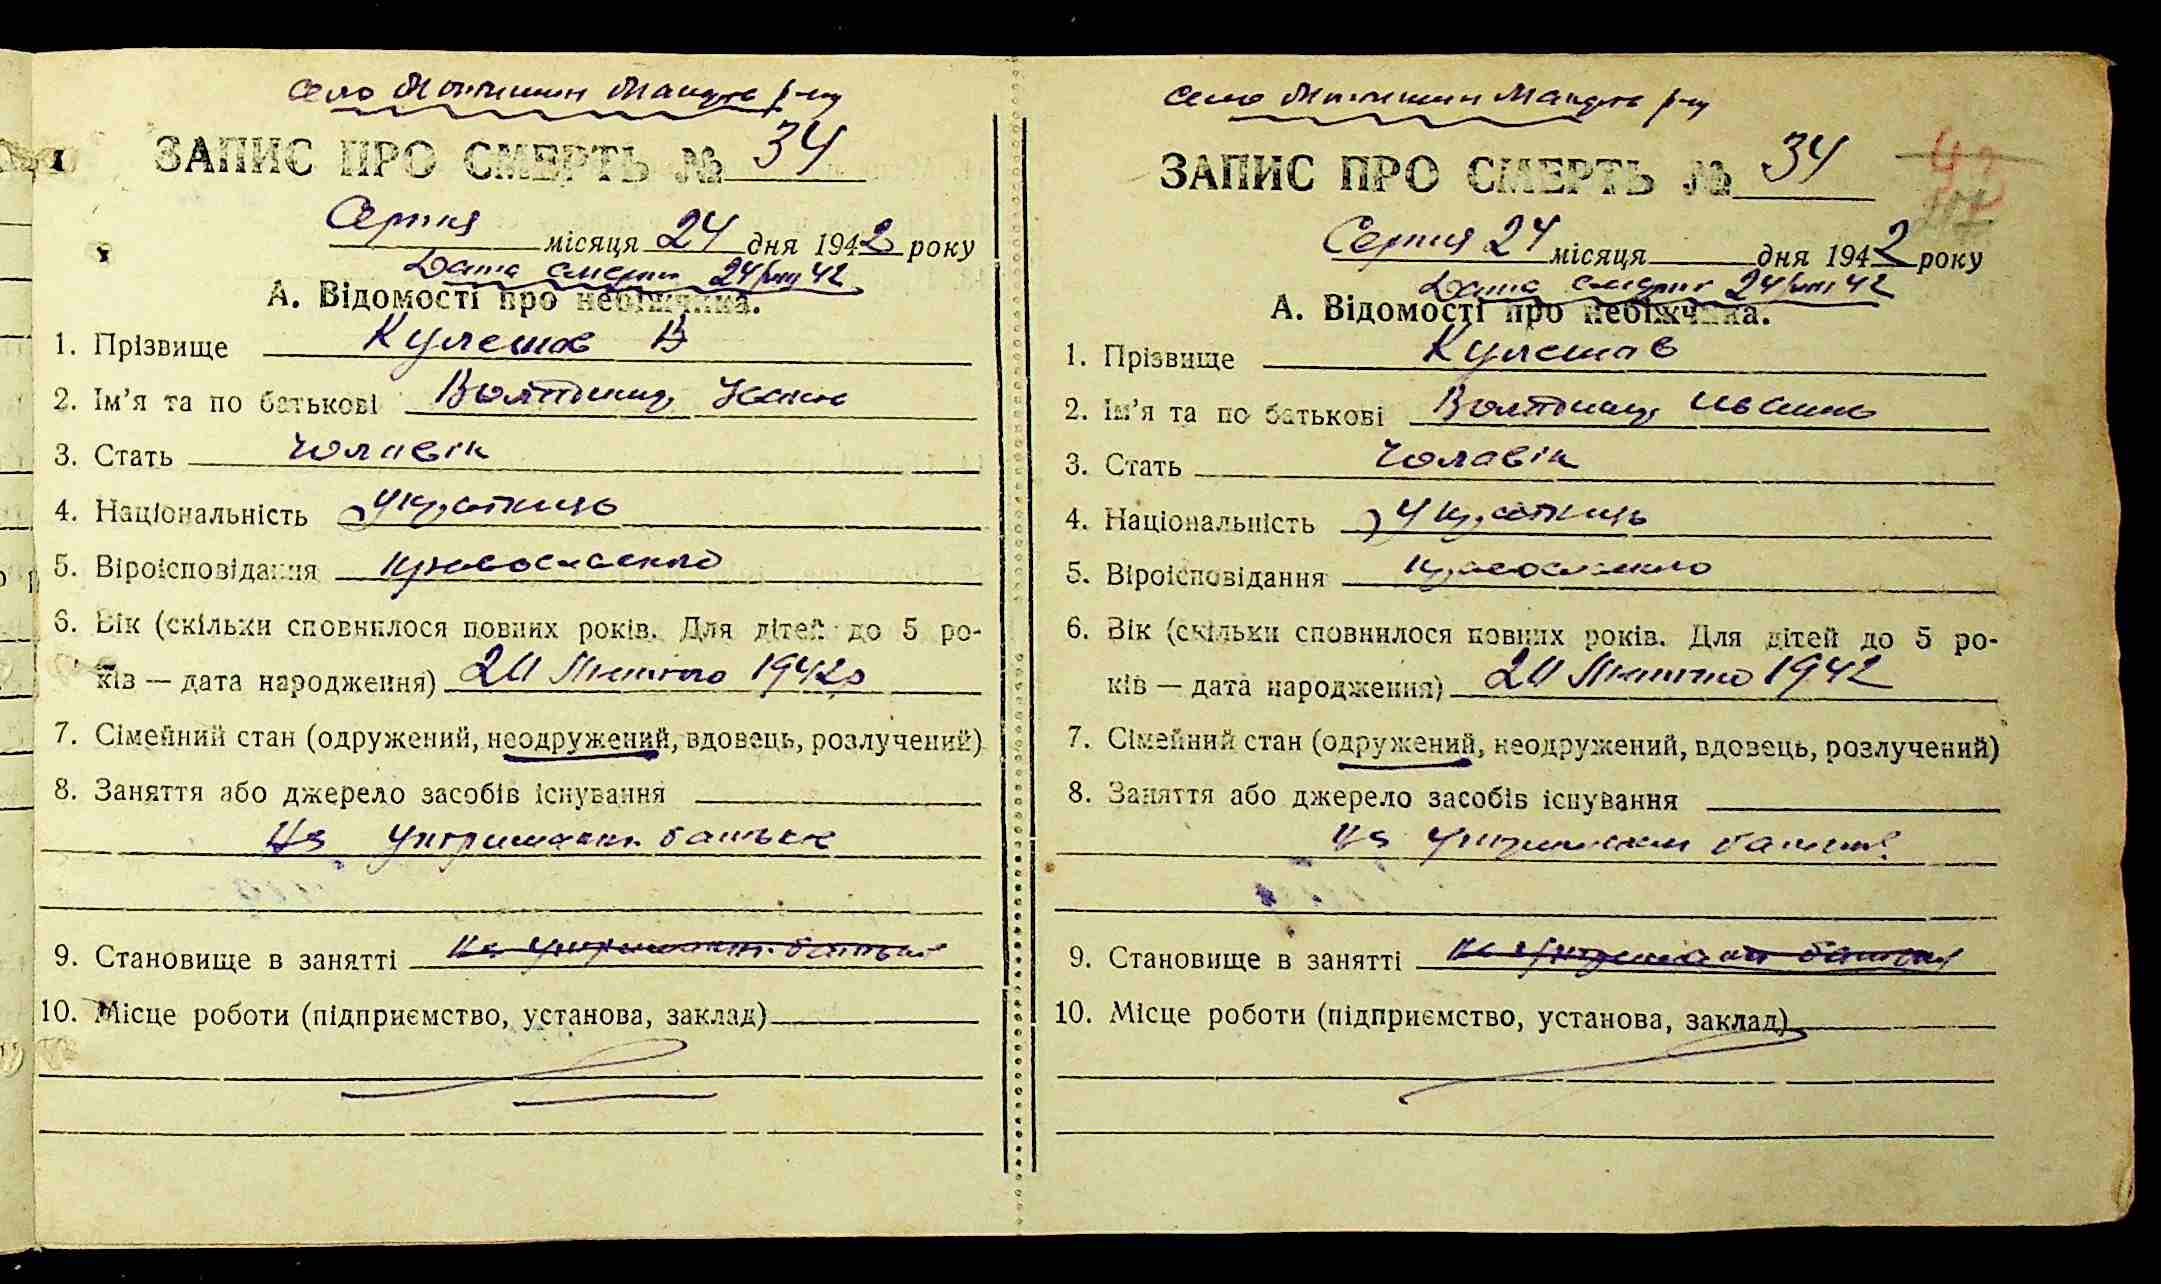 село Мотижин Макарів р-ну
ЗАПИС ПРО СМЕРТЬ № 34
Серпня місяця 24 дня 1942 року
Дата смерти 24/VIII 42
А. Відомості про небіжчика.
1. Прізвище Кулешов В
2. Ім'я та по батькові
3. Стать чоловік
4. Національність Українець
5. Віроісповідання православного
6. Вік (скільки сповнилося повних років. Для дітей до 5 ро-
ків — дата народження) 20 Лютого 1942р
7. Сімейний стан (одружений, неодружений, вдовець, розлучений)
8. Заняття або джерело засобів існування
На утриманні батька
9. Становище в занятті на утриманні батька
10. Місце роботи (підприємство, установа, заклад)
село Мотижин Макарів р-ну
ЗАПИС ПРО СМЕРТЬ № 34
Серпня 24 місяця дня 1942 року
Дата смерти 24/VIII 42
А. Відомості про небіжчика.
1. Прізвище Кулешов
2. Ім'я та по батькові
3. Стать Чоловік
4. Національність Українець
5. Віроісповідання православного
6. Вік (скільки сповнилося повних років. Для дітей до 5 ро-
ків — дата народження) 20 Лютого 1942
7. Сімейний стан (одружений, неодружений, вдовець, розлучений)
8. Заняття або джерело засобів існування
На утриманні батька
9. Становище в занятті на утриманні батька
10. Місце роботи (підприємство, установа, заклад)